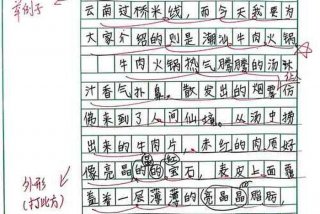 举例子
云南过桥米线，而今天我要为
大家介绍的则是潮汕牛肉火锅。
牛肉火锅热气腾腾的汤
汁香气扑鼻，散发出的烟雾仿
佛来到了人间仙境。从汤中捞
出来的牛肉片，赤红的肉质好
像亮晶的红宝石，表皮上面覆
外形
（打比方）
盖着一层薄薄的亮晶晶脂肪，